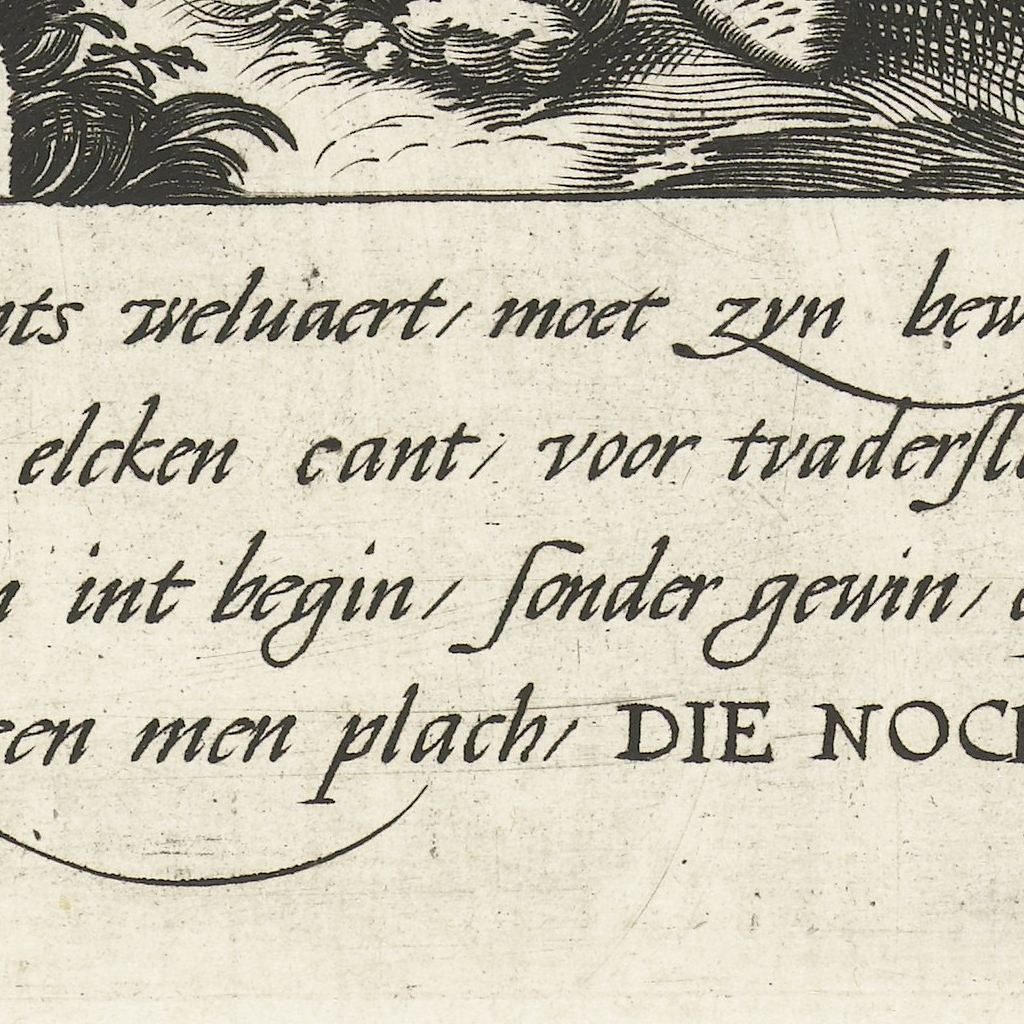 nts weluaert/ moet zyn bew
elcken cant/ voor tvaderſt
int begin/ ſonder gewin/
een men plach/ DIE NOC